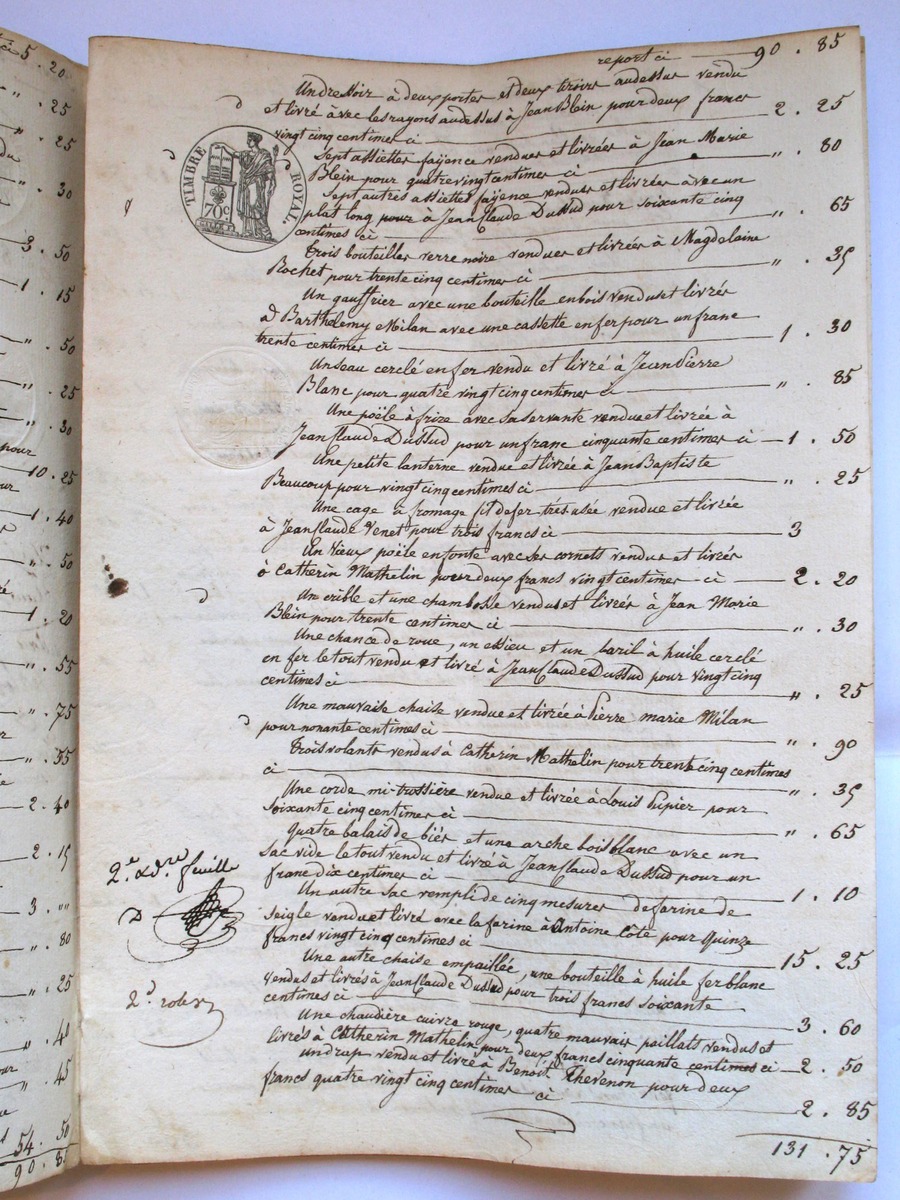 report ci 90 . 85
Un dressoir à deux portes et deux tiroirs audessus vendu
et livré avec les rayons audessus à Jean Blein pour deux francs
vingt cinq centimes ci 2 . 25
Sept assiettes faÿence vendues et livrées à Jean Marie
Blein pour quatre vingt centimes ci " . 80
Sept autres assiettes faÿence vendues et livrées avec un
plat long pour à Jean Claude Dussud pour soixante cinq
centimes ci " . 65
TIMBRE ROYAL.
70c
Trois bouteilles verre noire vendues et livrées à Magdelaine
Rochet pour trente cinq centimes ci " . 35
Un gauffrier avec une bouteille en bois vendus et livrés
à Barthelemy Milan avec une cassette en fer pour un franc
trente centimes ci 1 . 30
Un seau cerclé en fer vendu et livré à Jean Pierre
Blanc pour quatre vingt cinq centimes ci " . 85
Une poële à frire avec sa servante vendue et livrée à
Jean Claude Dussud pour un franc cinquante centimes ci 1 . 50
Une petite lanterne vendue et livrée à Jean Baptiste
Beaucoup pour vingt cinq centimes ci " . 25
Une cage à fromage fil de fer très usée vendue et livrée
à Jean Claude Venet pour trois francs ci 3
Un vieux poële en fonte avec ses cornets vendus et livrés
à Catherin Mathelin pour deux francs vingt centimes ci 2 . 20
Un crible et une vendus et livrés à Jean Marie
Blein pour trente centimes ci " . 30
Une chance de roue, un essieu et un baril à huile cerclé
en fer le tout vendu et livré à Jean Claude Dussud pour vingt cinq
centimes ci " . 25
Une mauvaise chaise vendue et livrée à Pierre marie Milan
pour nonante centimes ci " . 90
Trois volants vendus à Catherin Mathelin pour trente cinq centimes
ci " . 35
Une corde vendue et livrée à Louis Pupier pour
soixante cinq centimes ci " . 65
Quatre balais de et une arche bois blanc avec un
sac vide le tout vendu et livré à Jean Claude Dussud pour un
franc dix centimes ci 1 . 10
2e. feuille
Un autre sac rempli de cinq mesures de farine de
seigle vendu et livré avec la farine à Antoine Côte pour Quinze
francs vingt cinq centimes ci 15 . 25
Une autre chaise empaillée, une bouteille à huile fer blanc
vendus et livrés à Jean Claude Dussud pour trois francs soixante
centimes ci 3 . 60
2d. role
Une chaudière cuivre rouge, quatre mauvais paillats vendus et
livrés à Catherin Mathelin pour deux francs cinquante centimes ci 2 . 50
un drap vendu et livré à Benoit Thevenon pour deux
francs quatre vingt cinq centimes ci 2 . 85
131 . 75